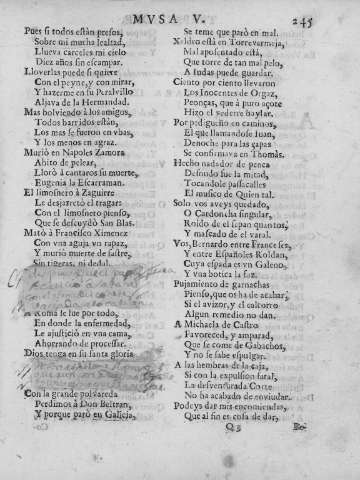 MVSA V.
245
Pues si todos estàn presos,
Sobre mi mucha lealtad,
Llueva carceles mi cielo
Diez años sin escampar.
Lloverlas puede si quiere
Con el peyne, y con mirar,
Y hazerme en su Peralvillo
Aljava de la Hermandad.
Mas bolviendo à los amigos,
Todos barridos estàn,
Los mas se fueron en vbas,
Y los menos en agraz.
Muriò en Napoles Zamora
Ahito de pelear,
Llorò à cantaros su muerte,
Eugenia la Escarraman.
El limosnero à Zaguirre
Le desjarretò el tragar:
Con el limosnero pienso,
Que se descuydò San Blas.
Matò à Francisco Ximenez
Con vna aguja vn rapaz,
Y muriò muerte de sastre,
Sin tigeras, ni dedal.
A Roma se fue por todo,
En donde la enfermedad,
Le ajusticiò en vna cama,
Ahorrando de procesar.
Dios tenga en su santa gloria
Con la grande polvareda
Perdimos à Don Beltran,
Y porque parò en Galicia,
Se teme que parò en mal.
Xeldre està en Torrevermeja,
Mal aposentado està,
Que torre de tan mal pelo,
A Iudas puede guardar.
Ciento por ciento llevaron
Los Inocentes de Orgaz,
Peonças, que à puro açote
Hizo el verdere baylar.
Por pedigueño en caminos,
El que llamandose Iuan,
De noche para las capas
Se confirmava en Thomàs.
Hecho nadador de penca
Desnudo fue la mitad,
Tocandole passacalles
El musico de Quien tal.
Solo vos aveys quedado,
O Cardoncha singular,
Roido de el sepan quantos,
Y mascado de el varal.
Vos, Bernardo entre Franceses,
Y entre Españoles Roldan,
Cuya espada es vn Galeno,
Y vna botica la faz.
Pujamiento de garnachas
Pienso, que os ha de acabar,
Si el avizor, y el calcorro
Algun remedio no dan.
A Michaela de Castro
Favoreced, y amparad,
Que se come de Gabachos,
Y no se sabe espulgar.
A las hembras de la caja,
Si con la expulsion fatal,
La desventurada Corte
No ha acabado de enviudar.
Podeys dar mis encomiendas,
Que al fin es cosa de dar,
Q 3